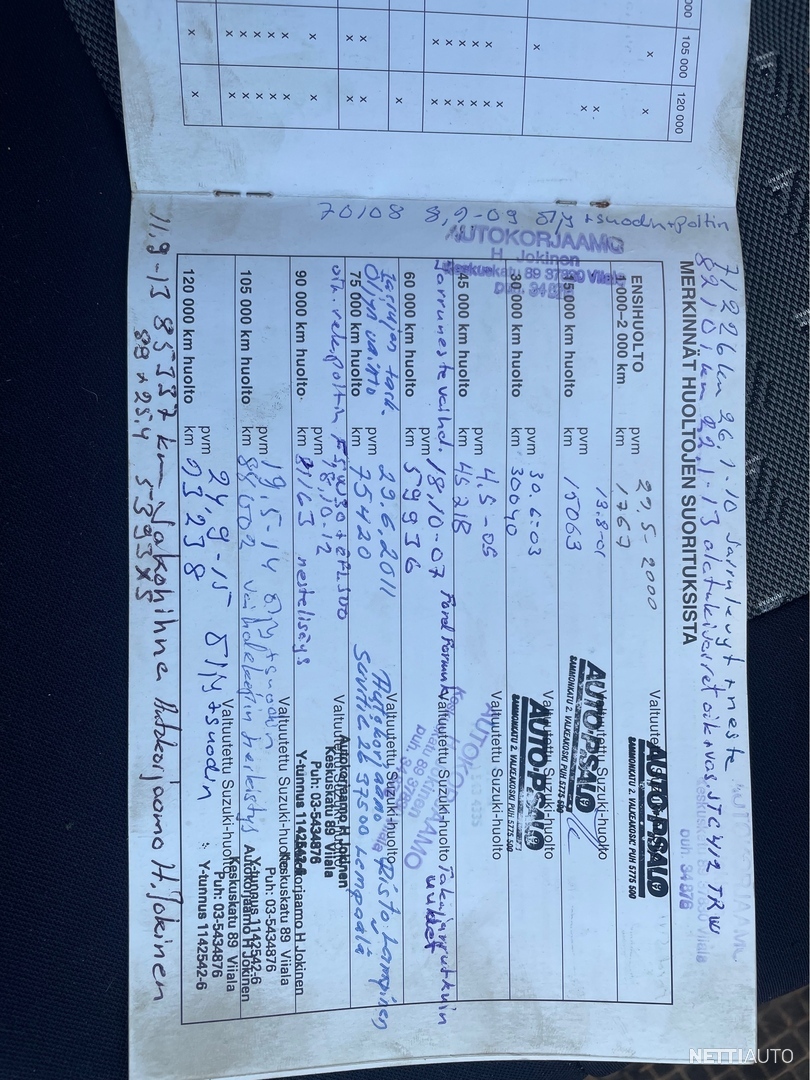 105 000
120 000
70108 8,9-09 öljy + suodin + poltin
AUTOKORJAAMO
H. Jokinen
Keskuskatu 89 37830 Viiala
71226 km 26.1-10 Jarrulevyt + neste
82101 km 22.1-13 alatukivarret oik + vas. JTC412 TRW
MERKINNÄT HUOLTOJEN SUORITUKSISTA
ENSIHUOLTO
1 000–2 000 km
pvm 29.5-2000
km 1767
Valtuutettu Suzuki-huolto
AUTO-P.SALO
SAMMONKATU 2. VALKEAKOSKI PUH 5775 500
15 000 km huolto
pvm 13.8-01
km 15063
Valtuutettu Suzuki-huolto
AUTO-P.SALO
SAMMONKATU 2. VALKEAKOSKI PUH 5775 500
30 000 km huolto
pvm 30.6-03
km 30040
Valtuutettu Suzuki-huolto
AUTO-P.SALO
SAMMONKATU 2. VALKEAKOSKI PUH 5775 500
45 000 km huolto
pvm 4.5-05
km 45218
Valtuutettu Suzuki-huolto
AUTOKORJAAMO
Jarruneste vaihd.
60 000 km huolto
pvm 18.10-07
km 59936
Valtuutettu Suzuki-huolto
uudet
Jarrujen tark.
Öljyn vaihto
75 000 km huolto
pvm 29.6.2011
km 75420
Valtuutettu Suzuki-huolto
Autokorjaamo Risto Lampinen
37500 Lempäälä
90 000 km huolto
pvm 1,8,10-12
km 81163 nestelisäys
Valtuutettu Suzuki-huolto
Autokorjaamo H Jokinen
Keskuskatu 89 Viiala
Puh: 03-5434876
Y-tunnus 1142542-6
105 000 km huolto
pvm 19.5-14 öljy + suodin
km 88602
Valtuutettu Suzuki-huolto
Autokorjaamo H Jokinen
Keskuskatu 89 Viiala
Puh: 03-5434876
Y-tunnus 1142542-6
120 000 km huolto
pvm 24.9-15 öljy + suodin
km 93238
Valtuutettu Suzuki-huolto
Autokorjaamo H Jokinen
Keskuskatu 89 Viiala
Puh: 03-5434876
Y-tunnus 1142542-6
11.9-13 85337 km Jakohihna Autokorjaamo H. Jokinen
88 x 25.4 5393XS
NETTIAUTO